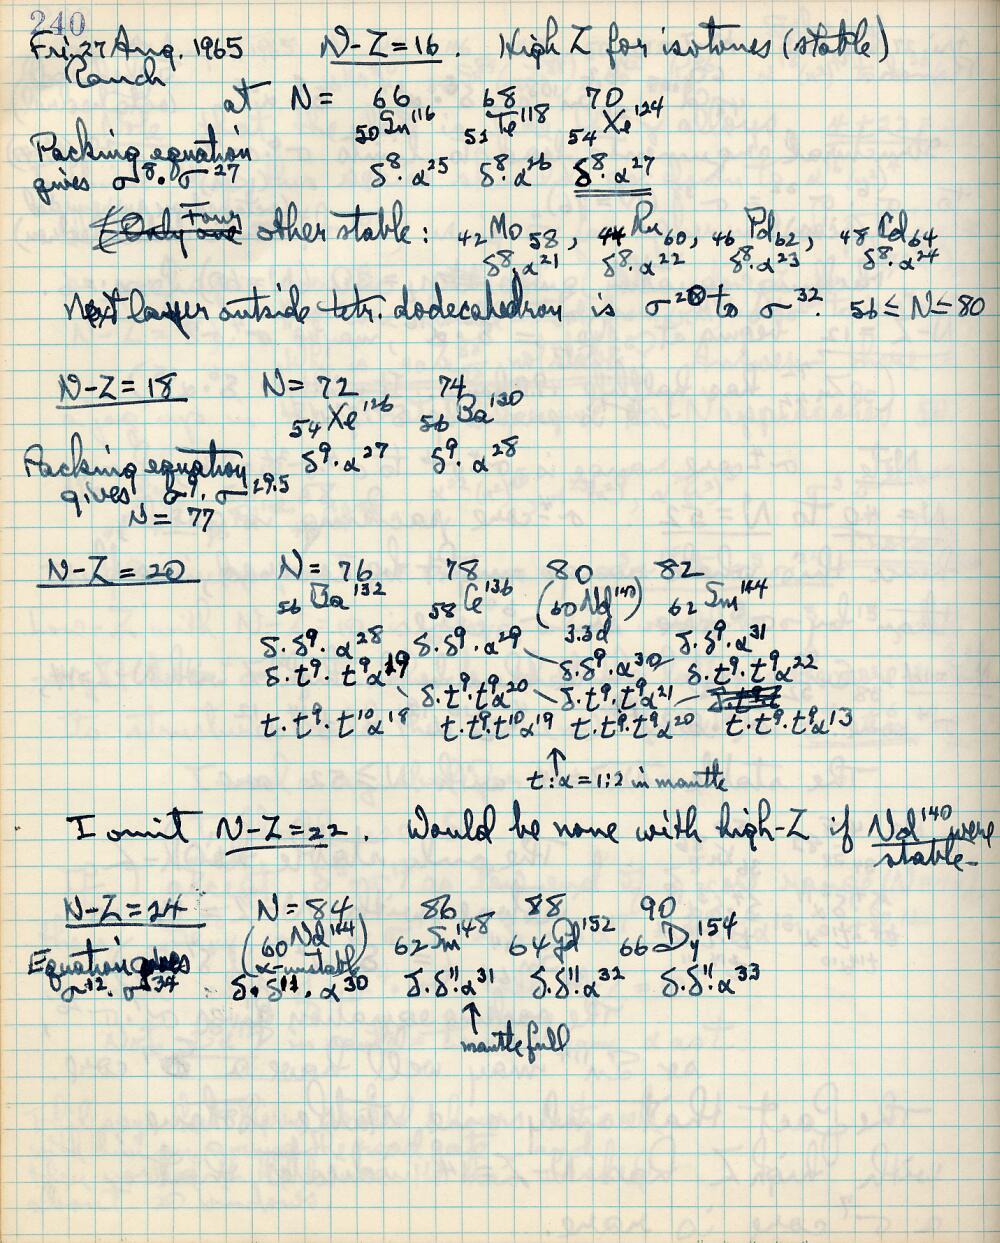 240
Fri. 27 Aug. 1965 N-Z=16. High Z for isotones (stable)
Ranch
at N = 66 68 70
₅₀Sn¹¹⁶ ₅₂Te¹¹⁸ ₅₄Xe¹²⁴
Packing equation
gives σ⁸·σ²⁷ δ⁸·α²⁵ δ⁸·α²⁶ δ⁸·α²⁷
Four
Only one other stable: ₄₂Mo₅₈, ₄₄Ru₆₀, ₄₆Pd₆₂, ₄₈Cd₆₄
δ⁸·α²¹ δ⁸·α²² δ⁸·α²³ δ⁸·α²⁴
Next layer outside tetr. dodecahedron is σ²⁰ to σ³². 56 ≤ N ≤ 80
N-Z = 18 N = 72 74
₅₄Xe¹²⁶ ₅₆Ba¹³⁰
Packing equation δ⁹·α²⁷ δ⁹·α²⁸
gives σ⁹·σ²⁹·⁵
N = 77
N-Z = 20 N = 76 78 80 82
₅₆Ba¹³² ₅₈Ce¹³⁶ (₆₀Nd¹⁴⁰) ₆₂Sm¹⁴⁴
3.3d
δ·δ⁹·α²⁸ δ·δ⁹·α²⁹ δ·δ⁹·α³⁰ δ·δ⁹·α³¹
δ·t⁹·t⁹α¹⁹ δ·t⁹·t⁹α²⁰ δ·t⁹·t⁹α²¹ δ·t⁹·t⁹α²²
t·t⁹·t¹⁰α¹⁸ t·t⁹·t¹⁰α¹⁹ t·t⁹·t⁹α²⁰ t·t⁹·t⁹α¹³
↑
t:α = 1:2 in mantle
I omit N-Z=22. Would be none with high-Z if Nd¹⁴⁰ were
stable-
N-Z=24 N=84 86 88 90
(₆₀Nd¹⁴⁴ ₆₂Sm¹⁴⁸ ₆₄Gd¹⁵² ₆₆Dy¹⁵⁴
α-unstable)
Equation gives
σ¹²·σ³⁴ δ·δ¹¹·α³⁰ δ·δ¹¹α³¹ δ·δ¹¹α³² δ·δ¹¹α³³
↑
mantle full